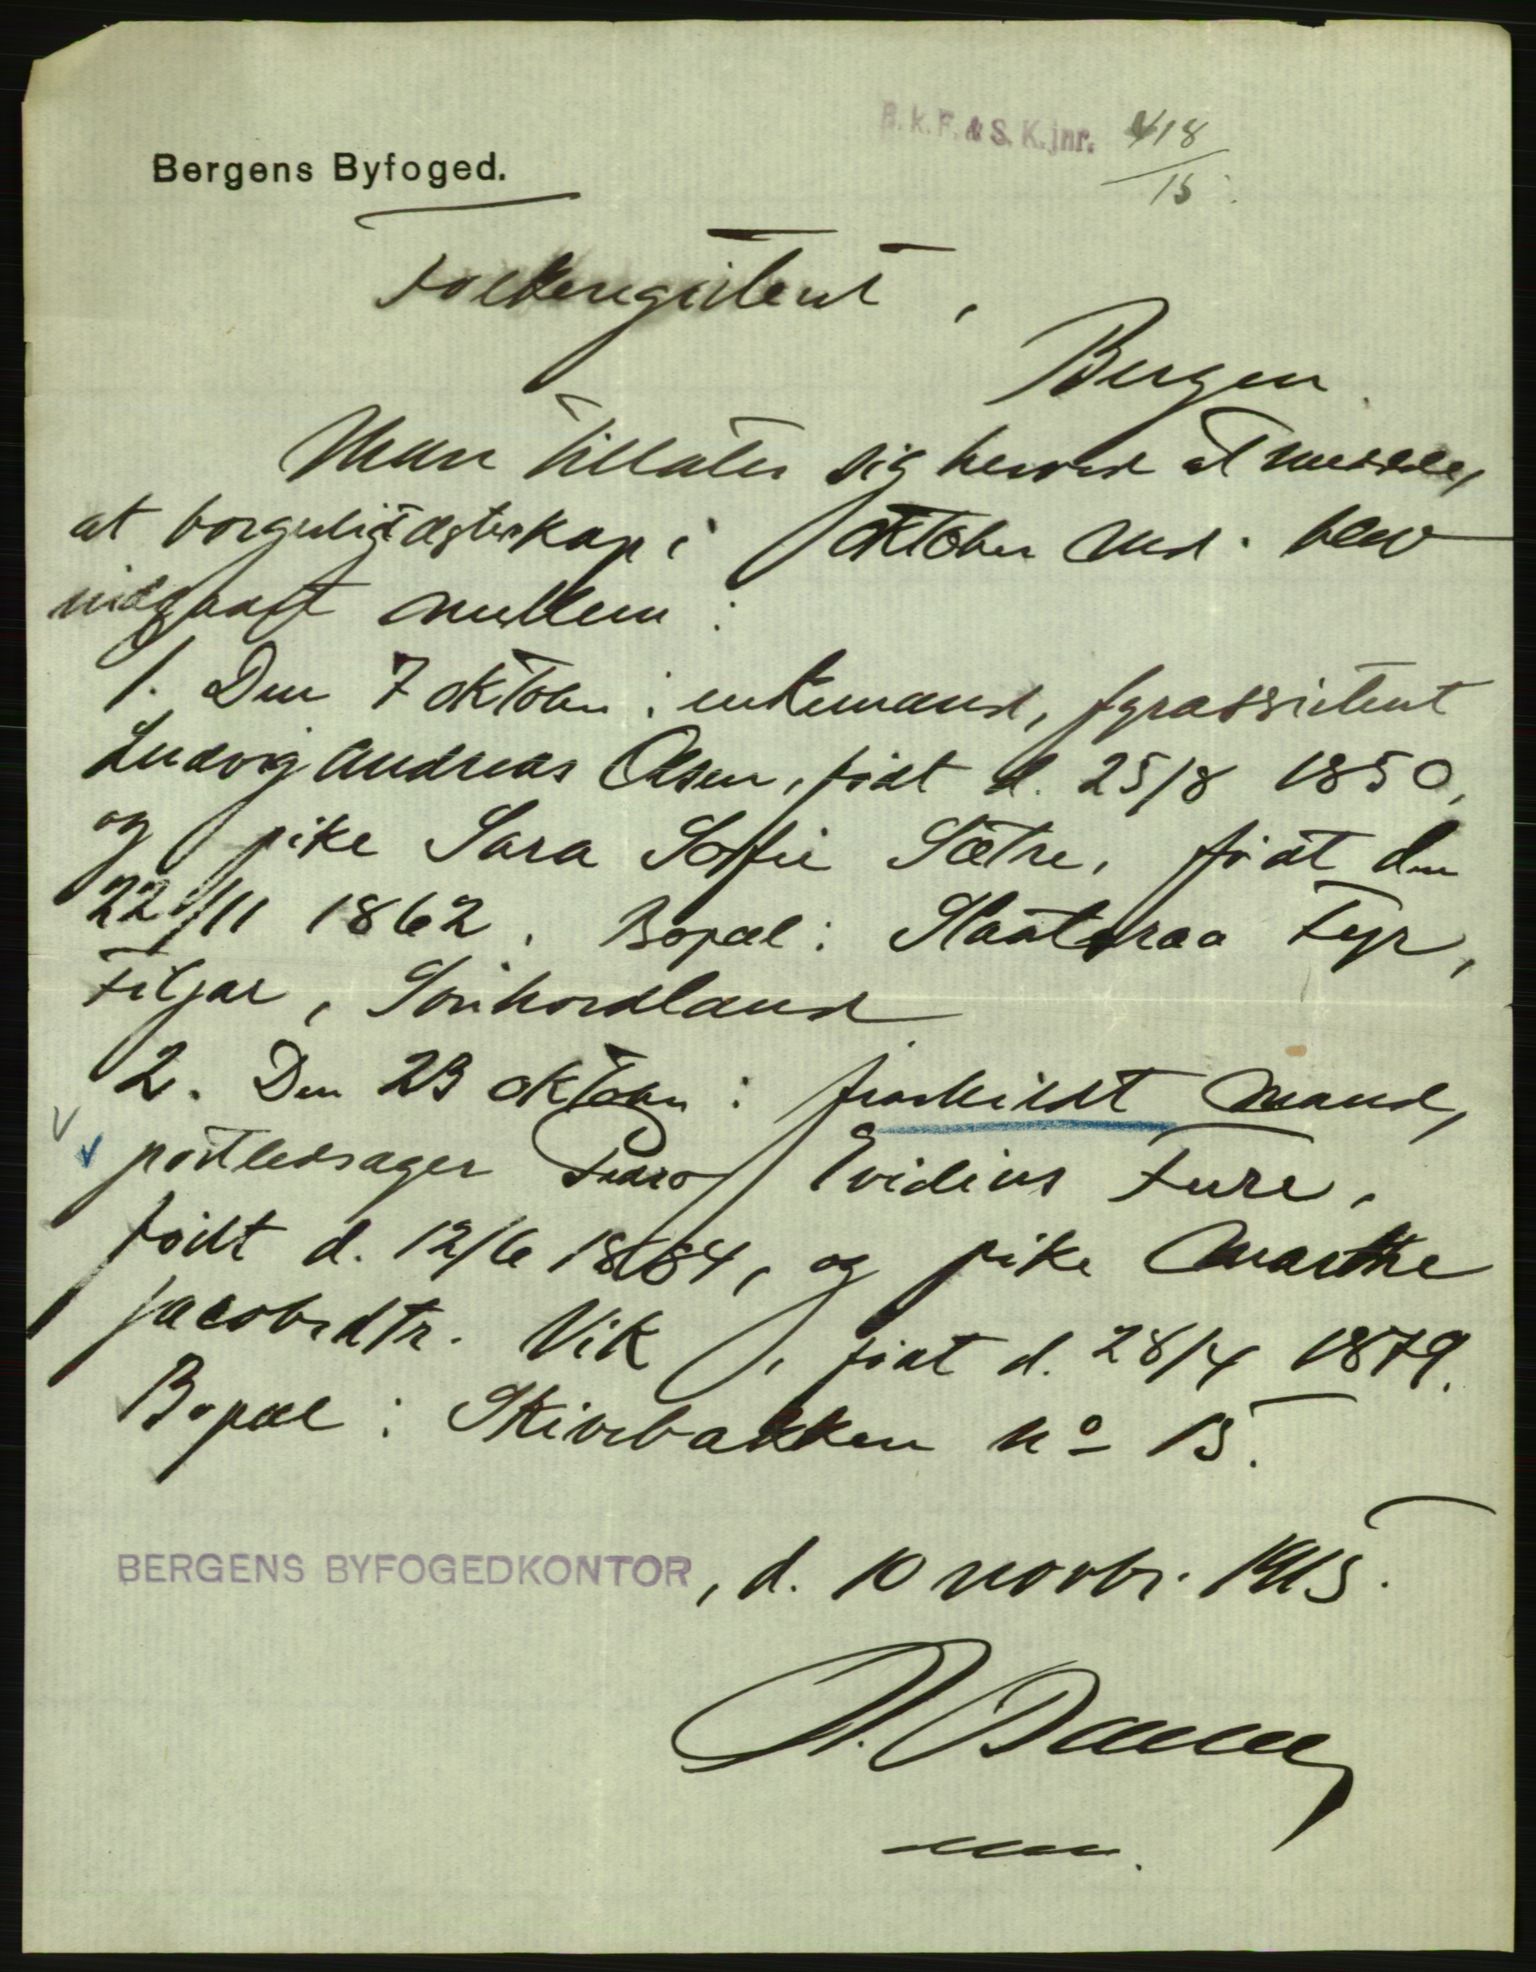 B.k.F. & S.K.jnr. 418
15
Bergens Byfoged.
Folkeregisteret,
Bergen.
Man tillater sig herved at melde,
at borgerlig ægteskap i oktober md. blev
indgaaft mellem:
1. Den 7 oktober: enkemand, fyrassistent
Ludvig Andreas Olsen, født d. 25/8 1850,
og pike Sara Sofie Sætre, født den
22/11 1862. Bopæl: Slaatteraa Fyr,
Fitjar, Sönhordland
2. Den 23 oktober: fraskildt mand,
postledsager Peder Evidius Fure,
født d. 12/6 1884, og pike Marthe
Jacobsdtr. Vik, født d. 28/4 1879.
Bopæl: Skivebakken No 15.
BERGENS BYFOGEDKONTOR, d. 10 novbr. 1915.